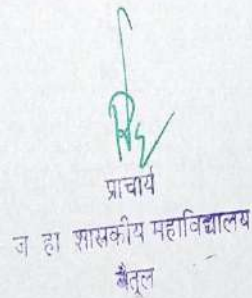 प्राचार्य
ज हा शासकीय महाविद्यालय
बैतूल